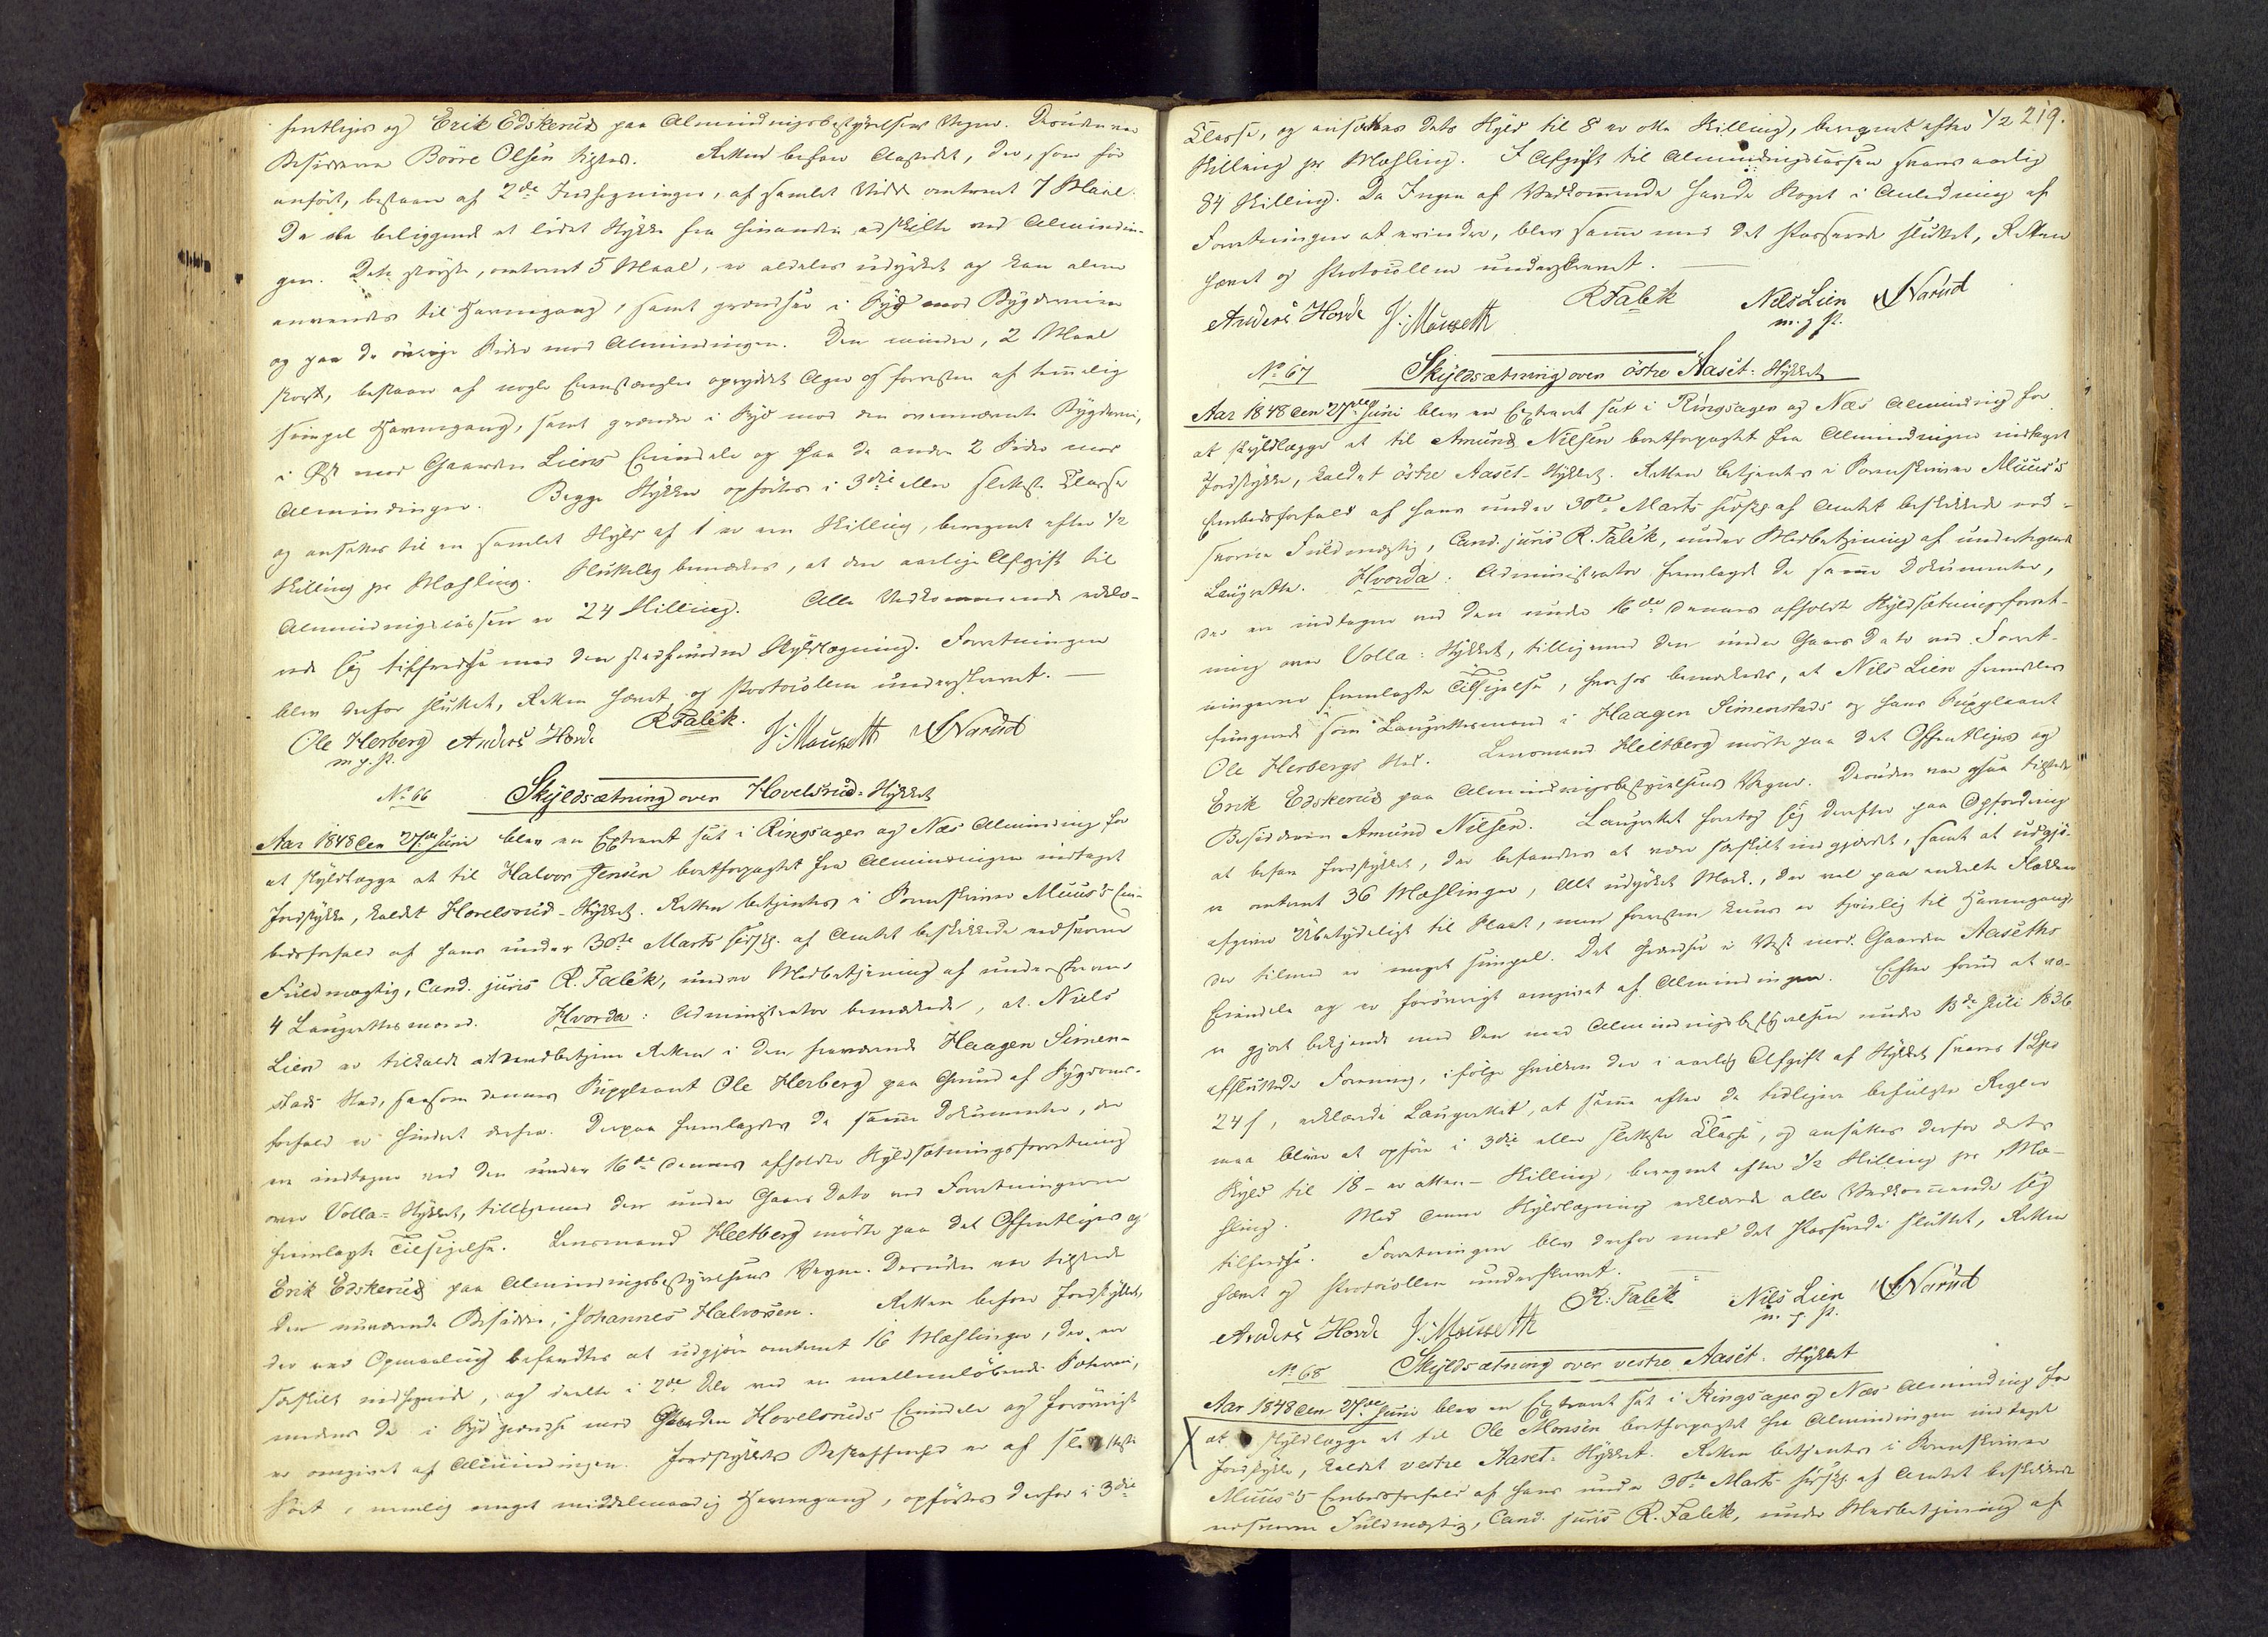 fentliges og Erik Edskerud paa Almindingsbestyrelsens Vegne. Desuden var
Besidderen Börre Olsen tilstede. Retten besaae Aastedet, der, som för
anfört, bestaaer af 2de Indhegninger, af samlet Vidde omtrent 7 Maal
De ere beliggende et lidet Stykke fra hinanden adskilte ved Almindin-
gen. Dets störste, omtrent 5 Maal, er aldeles udyrket og kan alene
anvendes til Havnegang, samt grændser i Syd mod Bygderne
og paa de övrige Sider mod Almindingen. Den mindre, 2 Maal
stort, bestaaer af nogle opryddet Ager og forresten af temmelig
simpel Havnegang, samt grændser i Syd mod den ovennævnte
i Öst mod Gaarden Liens Eiendele og paa de andre 2 Sider mod
Almindingen. Begge Stykker opförtes i 3die eller sletteste Classe
og ansættes til en samlet Skyld af 1 er een Skilling, beregnet efter 1/2
Skilling pr Mæhling. Slutteligen bemærkes, at den aarlige Afgift til
Almindingscassen er 24 Skilling. Alle Vedkommende erklæ-
rede sig tilfredse med den stedfundne Skyldlægning. Forretningen
blev derfor sluttet, Retten hævet og Protocollen underskrevet. —
Ole Herberg Anders Horde R Falck. J. Mauseth Narud
m. p. P.
No 66 Skyldsætning over Hovelsrud-Stykket
Aar 1848 den 27de Juni blev en Extraret sat i Ringsager og Næs Alminding for
at skyldlægge et til Halvor Jensen bortforpagtet fra Almindingen indtaget
Jordstykke, kaldet Hovelsrud-Stykket. Retten betjentes i Sorenskriver Muus's Em-
bedsforfald af hans under 30te Marts sidstl. af Amtet beskikkede edsvorne
Fuldmægtig, Cand. juris R. Falck, under Medbetjening af underskrevne
4 Laugrettesmænd. Hvorda: Administrator bemærkede, at Niels
Lien er tilkaldt at medbetjene Retten i den fraværende Haagen Simen-
stads Sted, saasom dennes Suppleant Ole Herberg paa Grund af Sygdoms-
forfald er hindret derfra. Derpaa fremlagdes de samme Dokumenter, der
ere indtagne ved den under 16de dennes afholdte Skyldsætningsforretning
over Volla-Stykket, tilligemed den under Gaars Dato ved Forretningerne
fremlagte Tilsigelse. Lensmand Heltberg mödte paa det Offentliges og
Erik Edskerud paa Almindingsbestyrelsens Vegne. Desuden var tilstede
den nuværende Besidder, Johannes Halvorsen. Retten besaae Jordstykket,
der ved Opmaaling befandtes at udgjöre omtrent 16 Mæhlinger, der er
særskilt indhegnede, og deelte i 2de Dele ved en mellemlöbende
medens de i Syd grændse mod Gaarden Hovelsruds Eiendele og forövrigt
er omgivet af Almindingen. Jordstykkets Beskaffenhed er af sletteste
Sort, nemlig meget middelmaadig Havnegang, opförtes derfor i 3die
219.
Classe, og ansattes dets Skyld til 8 er otte Skilling, beregnet efter 1/2
Skilling pr Mæhling. I Afgift til Almindingscassen svares aarlig
84 Skilling. Da Ingen af Vedkommende havde Noget i Anledning af
Forretningen at erindre, blev samme med det Passerede sluttet, Retten
hævet og Protocollen underskrevet. —
Anders Horde J. Mauseth R Falck Nils Lien Narud
m. p. P.
No 67 Skyldsætning over östre Aaset-Stykket
Aar 1848 den 27de Juni blev en Extraret sat i Ringsager og Næs Alminding for
at skyldlægge et til Amund Nilsen bortforpagtet fra Almindingen indtaget
Jordstykke, kaldet östre Aaset-Stykket. Retten betjentes i Sorenskriver Muus's
Embedsforfald af hans under 30te Marts sidstl. af Amtet beskikkede ed-
svorne Fuldmægtig, Cand. juris R. Falck, under Medbetjening af undertegnede
Laugrette. Hvorda: Administrator fremlagde de samme Dokumenter,
der ere indtagne ved den under 16de dennes afholdte Skyldsætningsforret-
ning over Volla-Stykket, tilligemed den under Gaars Dato ved Forret-
ningerne fremlagte Tilsigelse, hvorhos bemærkedes, at Nils Lien fremdeles
fungerede som Laugrettesmand i Haagen Simenstads og hans Suppleant
Ole Herbergs Sted. Lensmand Heltberg mödte paa det Offentliges og
Erik Edskerud paa Almindingsbestyrelsens Vegne. Desuden var ogsaa tilstede
Besidderen Amund Nilsen. Laugrettet foretog sig derefter paa Opfordring
at besaae Jordstykket, der befandtes at være særskilt indgjærdet, samt at udgjö-
re omtrent 36 Mæhlinger, Alt udyrket Mark, der vel paa enkelte Flækker
afgiver Ubetydeligt til Slaat, men forresten kuns er tjenlig til Havnegang,
der tilmed er meget simpel. Det grændser i Vest mod Gaarden Aasæths
Eiendele og er forövrigt omgivet af Almindingen. Efter forud at væ-
re gjort bekjendt med den med Almindingsbestyrelsen under 13de Juli 1836
afsluttede Forening, ifölge hvilken der i aarlig Afgift af Stykket svares 1 Spd
24 s, erklærede Laugrettet, at samme efter de tidligere befulgte Regler
maa blive at opföre i 3die eller sletteste Classe, og ansættes derfor dets
Skyld til 18 - er atten - Skilling, beregnet efter 1/2 Skilling pr Mæ-
hling. Med denne Skyldlægning erklærede alle Vedkommende sig
tilfredse. Forretningen blev derfor med det Passerede sluttet, Retten
hævet og Protocollen underskrevet.
Anders Horde J. Mauseth R. Falck Nils Lien Narud
m. p. P.
No 68 Skyldsætning over vestre Aaset-Stykket
Aar 1848 den 27de Juni blev en Extraret sat i Ringsager og Næs Alminding for
at skyldlægge et til Ole Monsen bortforpagtet fra Almindingen indtaget
Jordstykke, kaldet vestre Aaset-Stykket. Retten betjentes i Sorenskriver
Muus's Embedsforfald af hans under 30te Marts sidstl. af Amtet beskikkede
edsvorne Fuldmægtig, Cand. juris R. Falck, under Medbetjening af